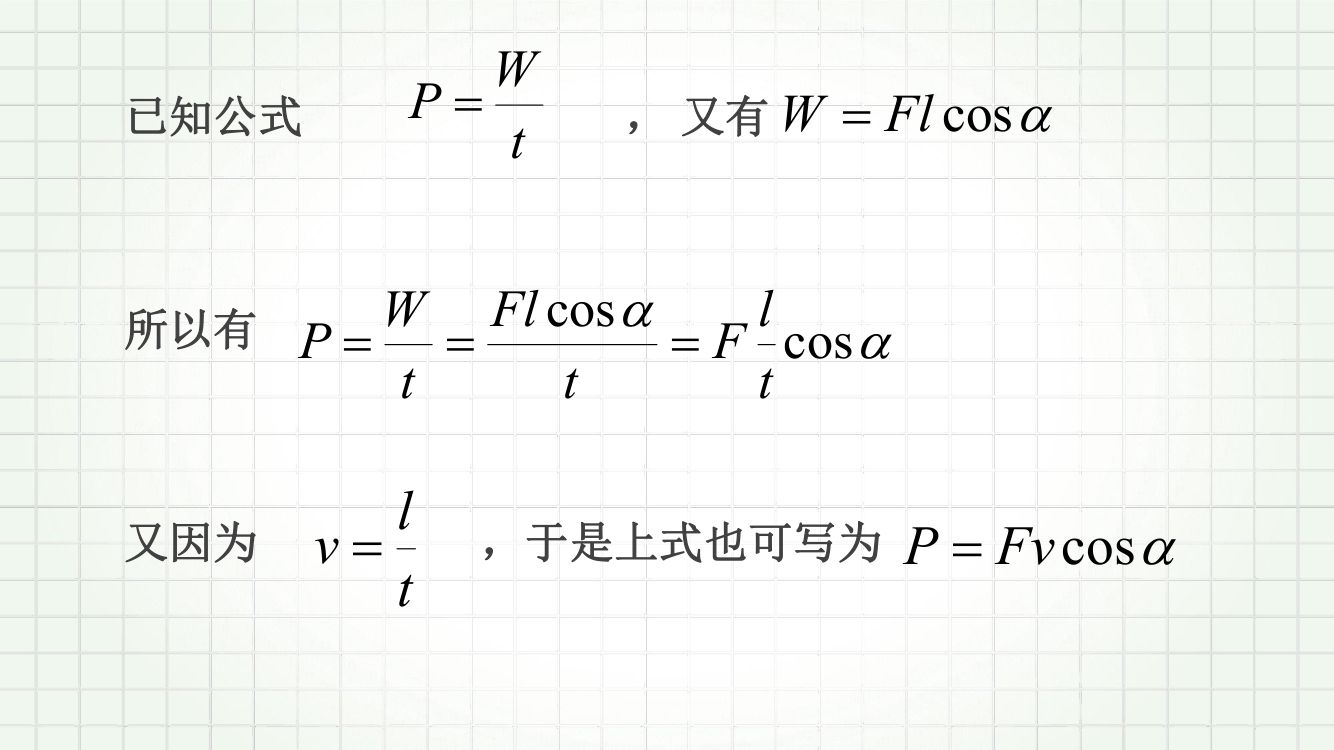 已知公式 P = W/t ， 又有 W = Fl cos α
所以有 P = W/t = Fl cos α/t = F l/t cos α
又因为 v = l/t ，于是上式也可写为 P = Fv cos α